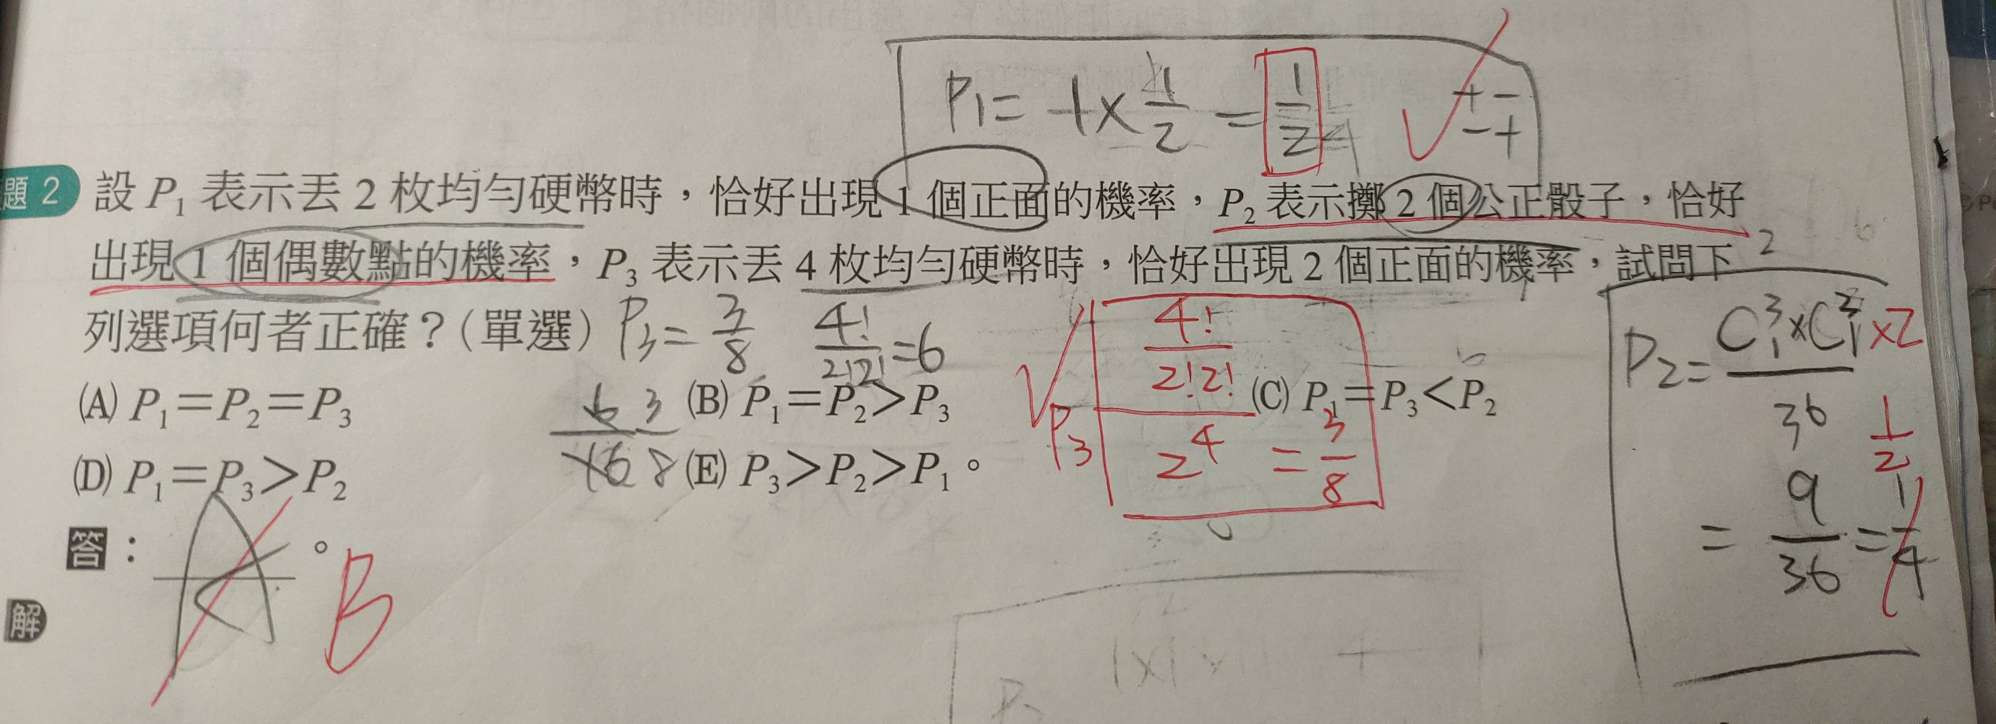 P₁ = 1 × 1/2 = 1/2 + − − +
題 2 設 P₁ 表示丟 2 枚均勻硬幣時，恰好出現 1 個正面的機率，P₂ 表示擲 2 個公正骰子，恰好
出現 1 個偶數點的機率，P₃ 表示丟 4 枚均勻硬幣時，恰好出現 2 個正面的機率，試問下
列選項何者正確？(單選)
P₃ = 3/8 4!/2!2! = 6
(A) P₁＝P₂＝P₃ (B) P₁＝P₂＞P₃ (C) P₁＝P₃＜P₂
(D) P₁＝P₃＞P₂ (E) P₃＞P₂＞P₁。
6/16 3/8
P₃ 4!/2!2! / 2⁴ = 3/8
P₂ = C³₁ × C³₁ × 2 / 36
1/2
= 9/36 = 1/4
答： A 。 B
解